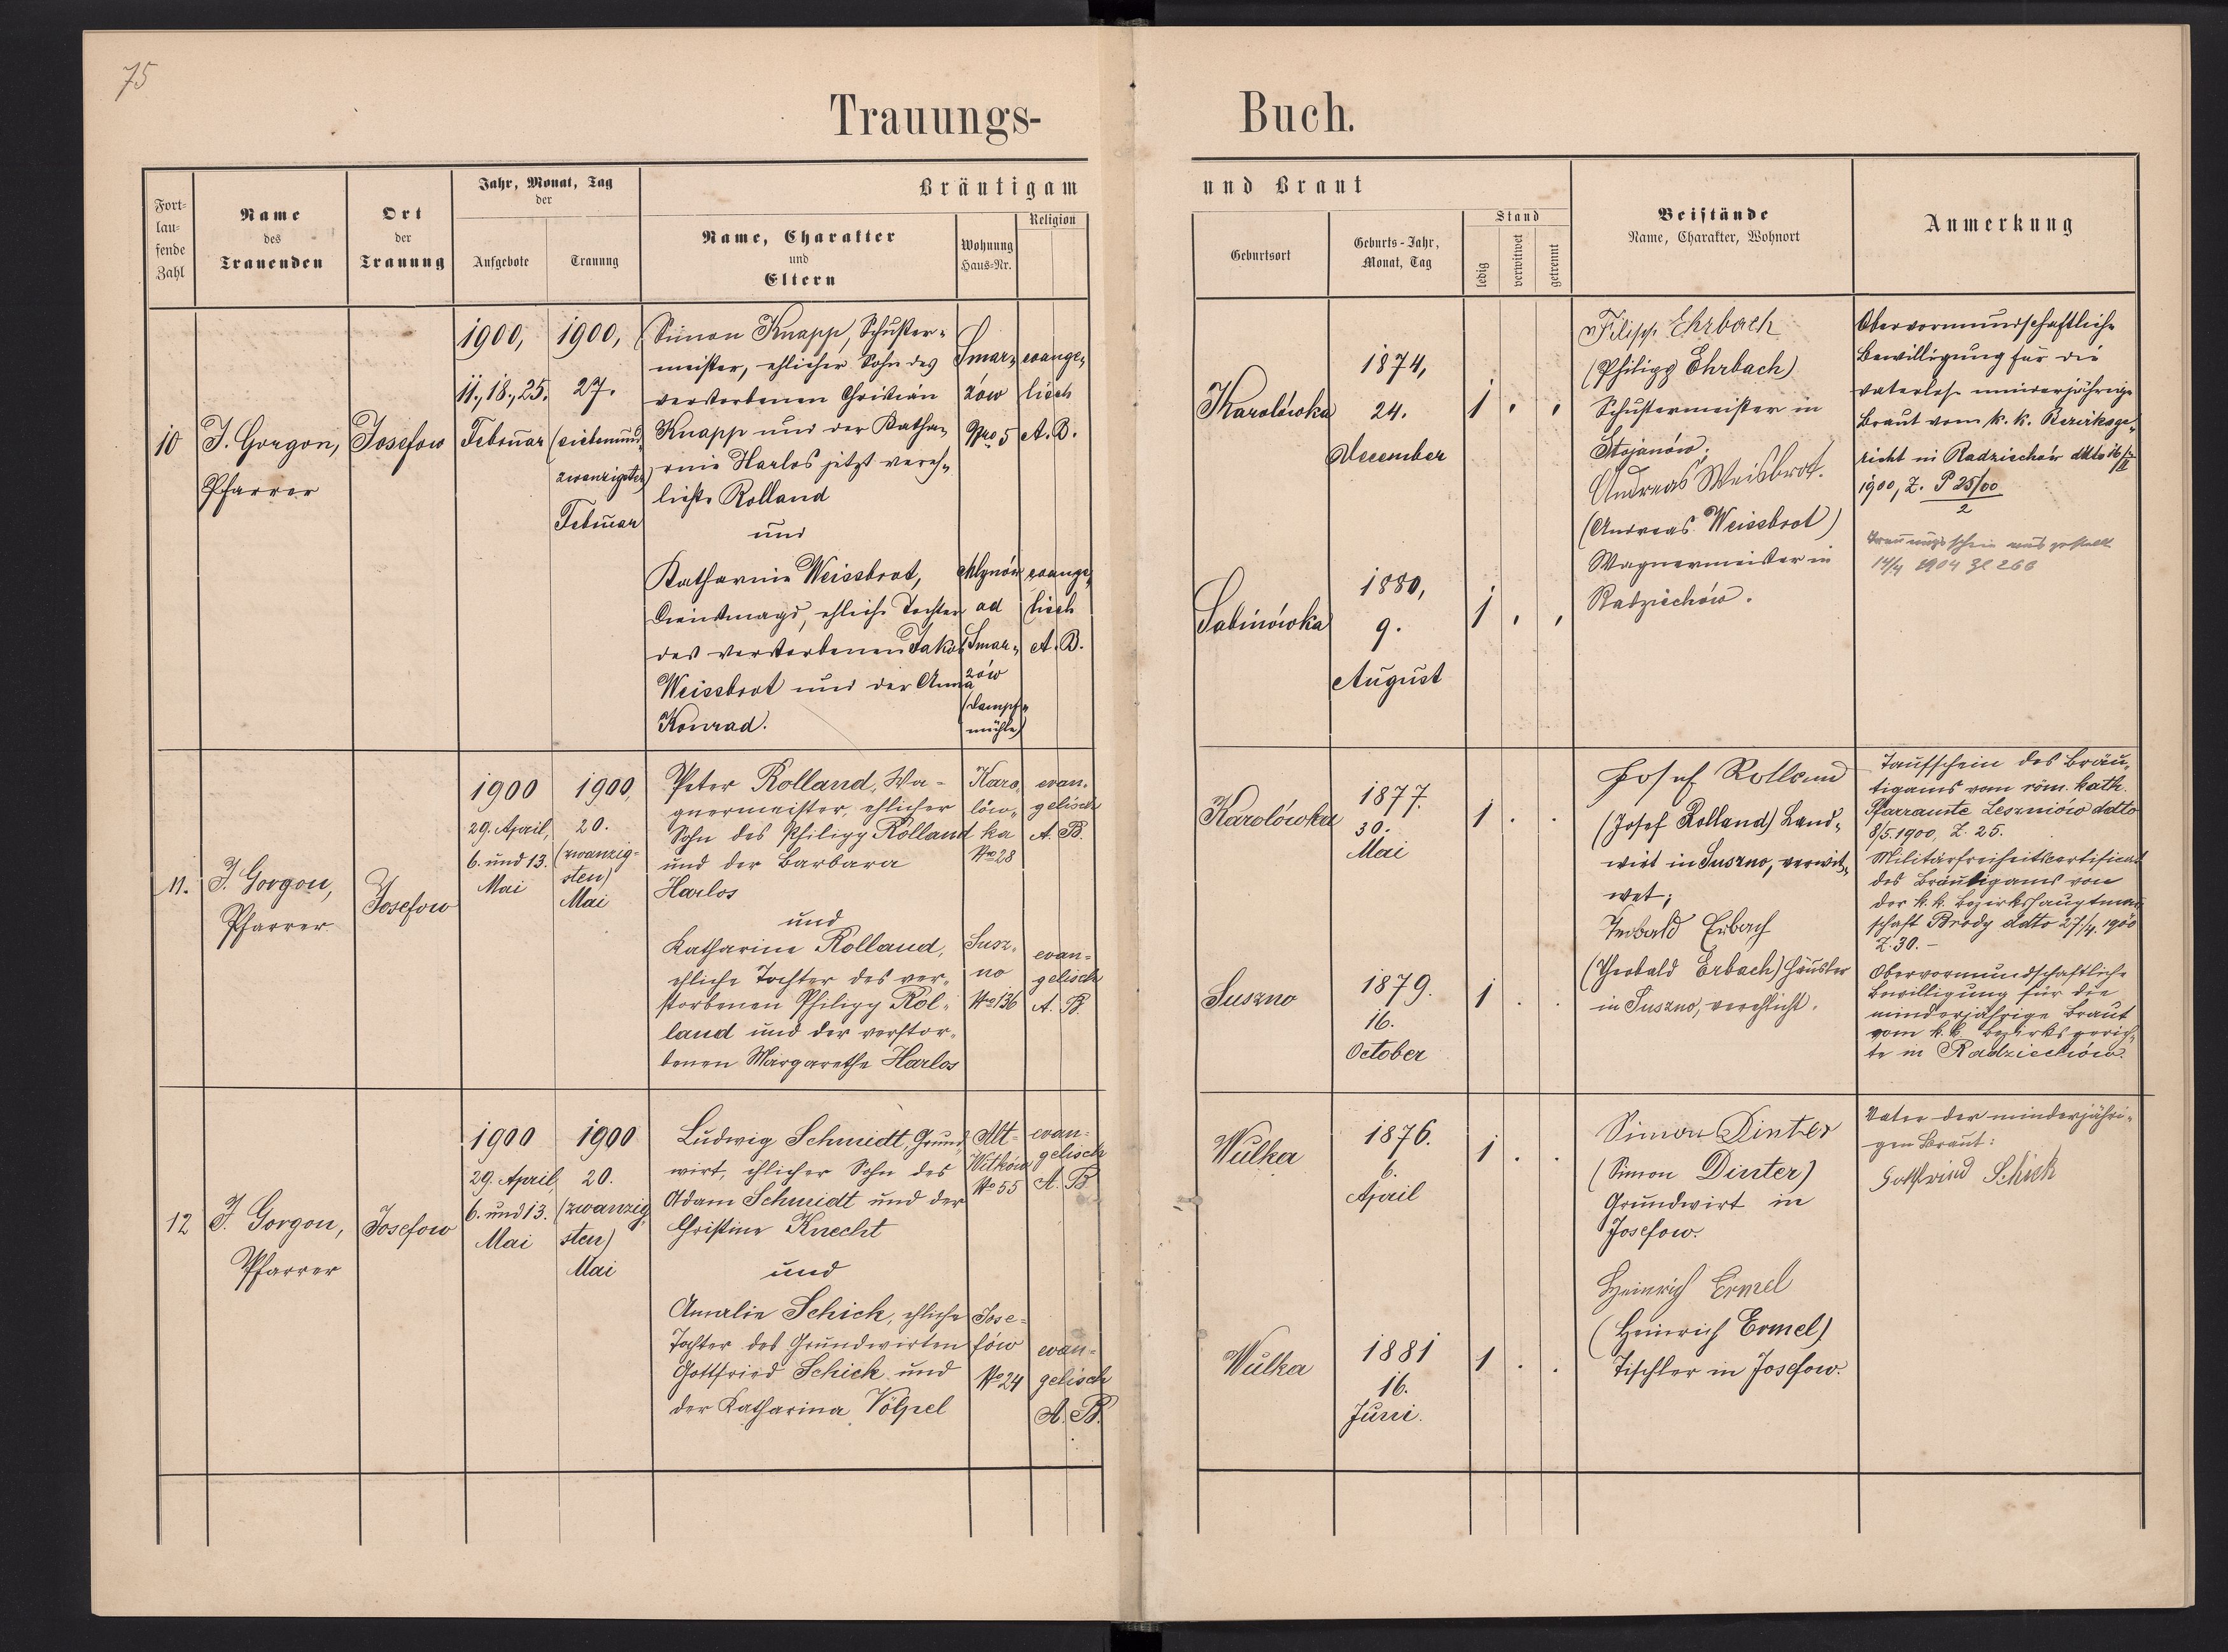 75
Trauungs-
Buch.
Fort-
lau-
fende
Zahl
Name
des
Trauenden
Ort
der
Trauung
Jahr, Monat, Tag
der
Aufgebote
Trauung
Bräutigam
Name, Charakter
und
Eltern
Wohnung
Haus-Nr.
Religion
und Braut
Geburtsort
Geburts-Jahr,
Monat, Tag
Stand
ledig
verwitwet
getrennt
Beistände
Name, Charakter, Wohnort
Anmerkung
10
J. Gorgon,
Pfarrer
Josefow
1900,
11., 18., 25.
Februar
1900,
27.
(siebenund
zwanzigsten)
Februar
Simon Knapp, Schuster-
meister, ehlicher Sohn des
verstorbenen Christian
Knapp und der Katha-
rine Harlos jetzt vereh-
lichte Rolland
und
Katharine Weissbrot,
Dienstmagd, ehliche Tochter
des verstorbenen Jakob
Weissbrot und der Anna
Konrad.
Smar-
zów
Nro 5
evange-
lisch
A. B.
Mlynów
ad
Smar-
zów
(Dampf-
mühle)
evange-
lisch
A. B.
Karolówka
1874,
24.
December
1 . .
Sabinówka
1880,
9.
August
1 . .
Filipp Ehrbach
(Philipp Ehrbach)
Schustermeister in
Stojanów;
Andreas Weisbrot.
(Andreas Weissbrot)
Wagnermeister in
Radziechów.
Obervormundschaftliche
Bewilligung für die
vaterlose minderjährige
Braut vom k. k. Bezirksge-
richt in Radziechów ddto 16/II
1900, Z. P 25/00
2
Trauungsschein ausgestellt
14/4 1904 Zl 260
11.
J. Gorgon,
Pfarrer
Josefow
1900
29. April,
6. und 13.
Mai
1900,
20.
(zwanzig-
sten)
Mai
Peter Rolland, Wa-
gnermeister, ehlicher
Sohn des Philipp Rolland
und der Barbara
Harlos
und
Katharine Rolland,
ehliche Tochter des ver-
storbenen Philipp Rol-
land und der verstor-
benen Margarethe Harlos
Karo-
lów-
ka
No 28
evan-
gelisch
A. B.
Susz-
no
No 136
evan-
gelisch
A. B.
Karolówka
1877.
30.
Mai
1 . .
Suszno
1879.
16.
October
1 . .
Josef Rolland
(Josef Rolland) Land-
wirt in Suszno, verwit-
wet;
Teobald Erbach
(Theobald Erbach) Häusler
in Suszno, verehlicht.
Taufschein des Bräu-
tigams vom röm. kath.
Pfarramte Leszniów ddto
8/5. 1900, Z. 25.
Militärfreiheitscertificat
des Bräutigams von
der k. k. Bezirkshauptman-
schaft Brody ddto 27/4. 1900
Z. 30. -
Obervormundschaftliche
Bewilligung für die
minderjährige Braut
vom k. k. Bezirksgerich-
te in Radziechów.
12
J. Gorgon,
Pfarrer
Josefow
1900
29. April,
6. und 13.
Mai
1900
20.
(zwanzig
sten)
Mai
Ludwig Schmidt, Grund-
wirt, ehlicher Sohn des
Adam Schmidt und der
Christine Knecht
und
Amalie Schick, ehliche
Tochter des Grundwirten
Gottfried Schick und
der Katharina Völpel
Alt-
Witków
No 55
evan-
gelisch
A. B.
Jose-
fów
No 24
evan-
gelisch
A. B.
Wulka
1876.
6.
April
1 . .
Wulka
1881
16.
Juni.
1 . .
Simon Dinter
(Simon Dinter)
Grundwirt in
Josefow.
Heinrich Ermel
(Heinrich Ermel)
Tischler in Josefow.
Vater der minderjähri-
gen Braut:
Gottfried Schick